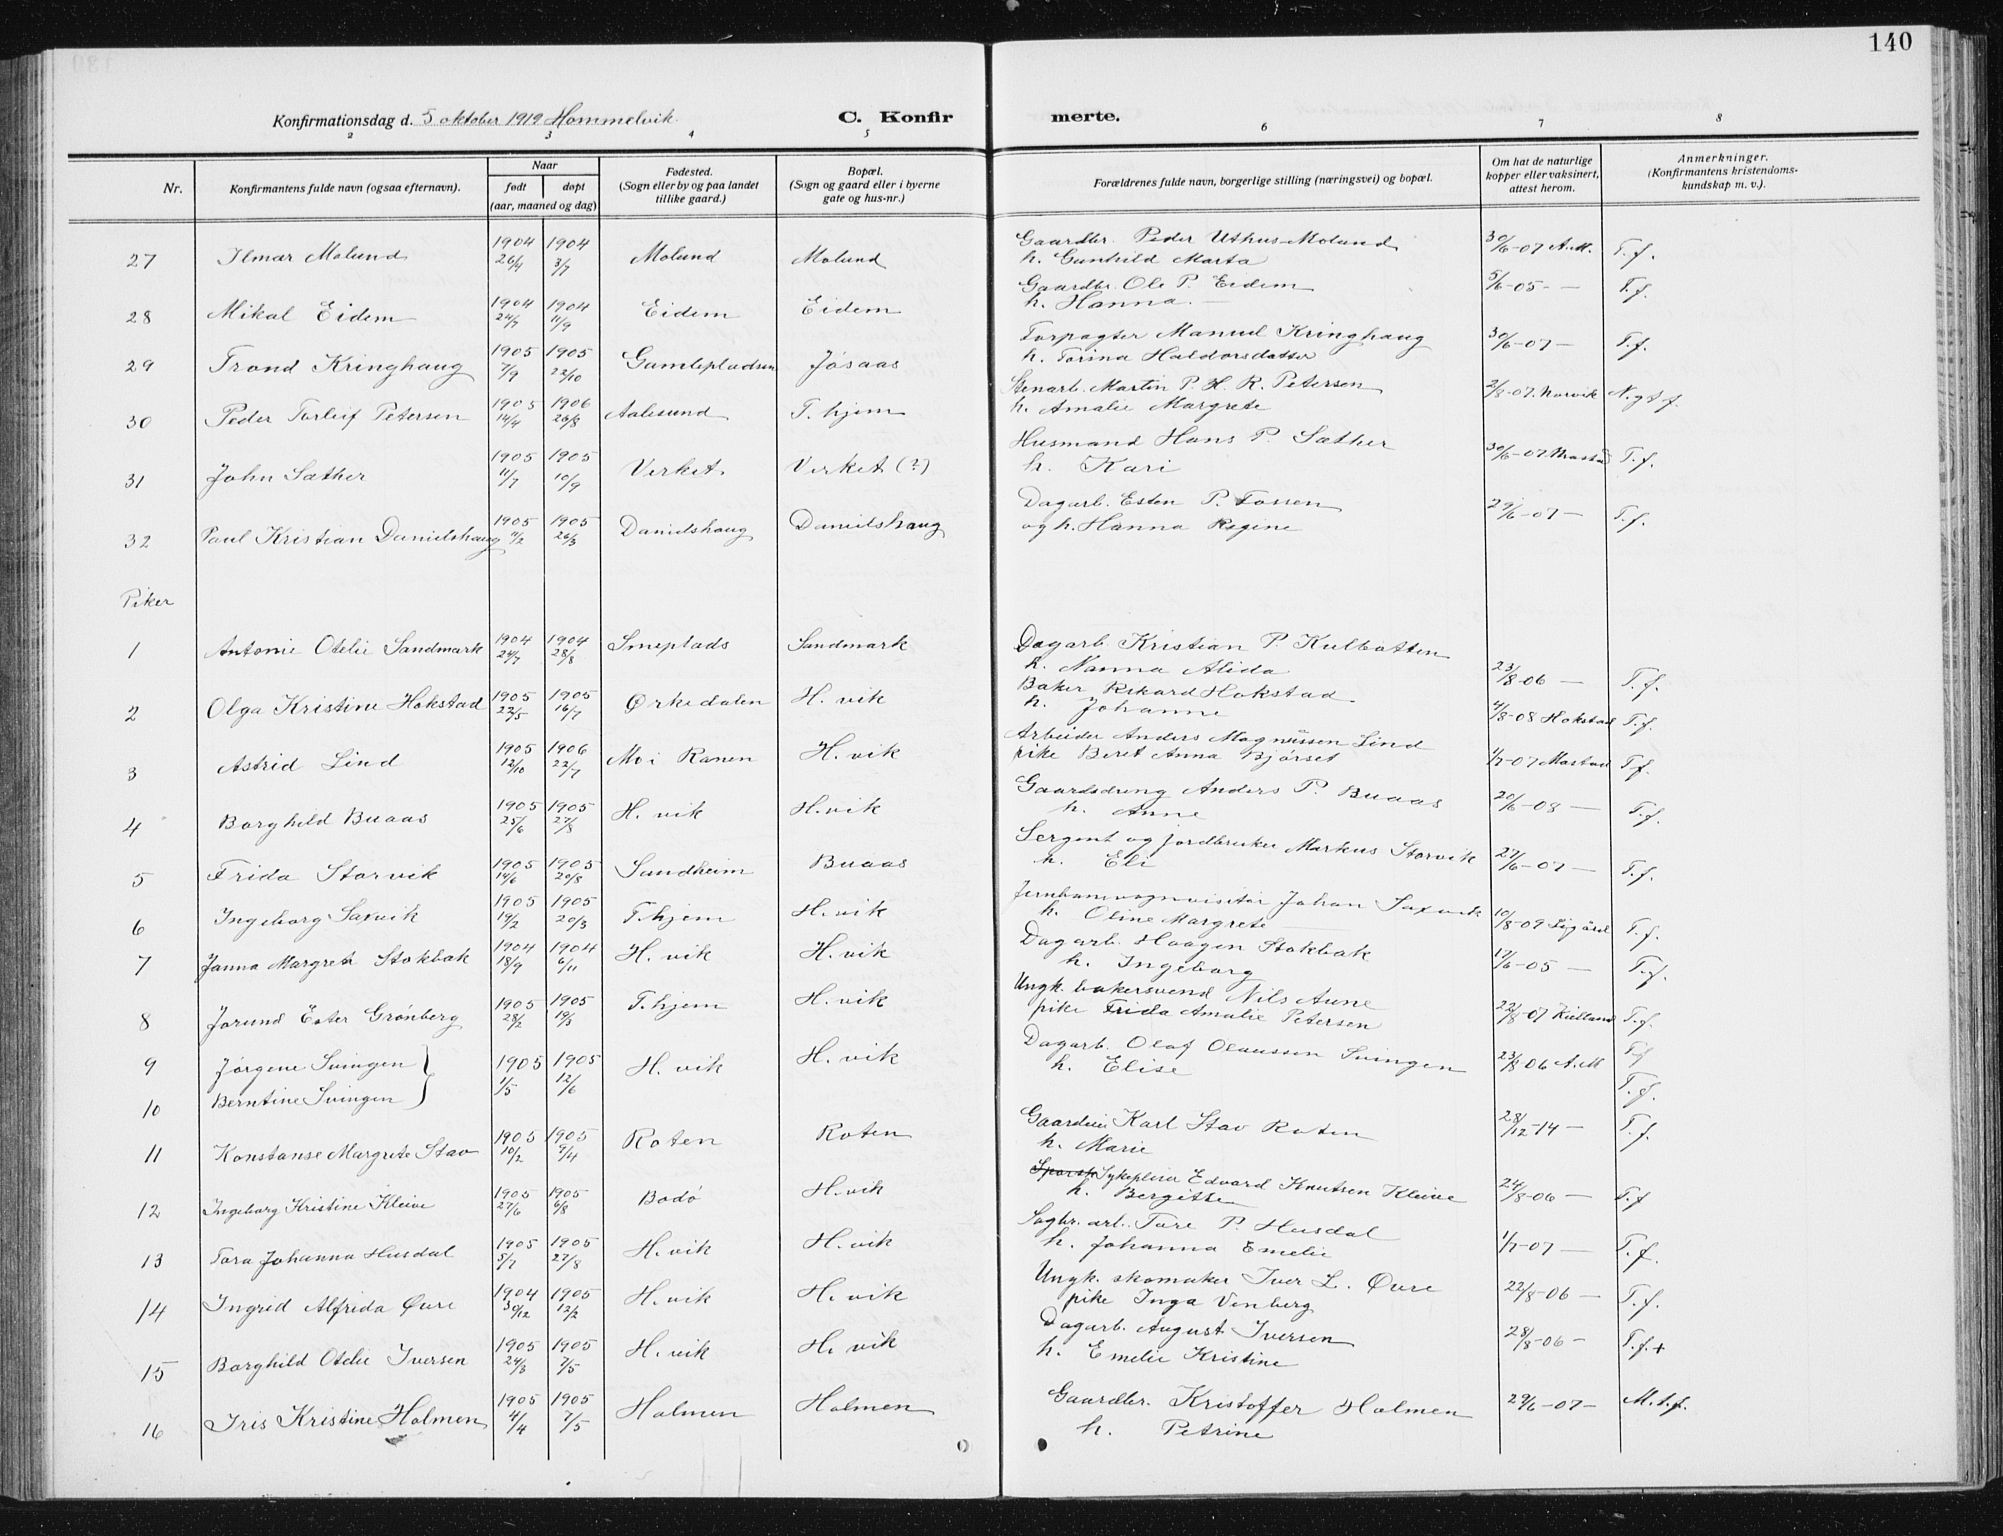 140
Konfirmationsdag d. 5 oktober 1919 Hommelvik. C. Konfir merte.
2 3 4 5 6 7 8
Nr. Konfirmantens fulde navn (ogsaa efternavn). Naar født døpt (aar, maaned og dag) Fødested. (Sogn eller by og paa landet tillike gaard.) Bopæl. (Sogn og gaard eller i byerne gate og hus-nr.) Forældrenes fulde navn, borgerlige stilling (næringsvei) og bopæl. Om hat de naturlige kopper eller vaksinert, attest herom. Anmerkninger. (Konfirmantens kristendoms-kundskap m. v.).
27 Ilmar Molund 1904 26/4 1904 3/7 Molund Molund Gaardbr. Peder Uthus-Molund 30/6-07 A.M. T.f.
h. Gunhild Marta
28 Mikal Eidem 1904 24/7 1904 11/9 Eidem Eidem Gaardbr. Ole P. Eidem 5/6-05 — T.f.
h. Hanna. —
29 Trond Kringhaug 1905 7/9 1905 22/10 Gamlepladsen Jøsaas Forpagter Manuel Kringhaug 30/6-07 — T.f.
h. Torina Haldorsdatter
30 Peder Torleif Petersen 1905 14/4 1906 26/8 Aalesund T.hjem Stenarb. Martin P. H. R. Petersen 2/8-07. Norvik N.gt f.
h. Amalie Margrete
31 John Sæther 1905 11/7 1905 10/9 Verket Verket (?) Husmand Hans P. Sæther 30/6-07 Mastad T.f.
h. Kari
32 Paul Kristian Danielshaug 1905 11/2 1905 26/3 Danielshaug Danielshaug Dagarb. Esten P. Fossen 29/6-07 — T.f.
og h. Hanna Regine
Piker
1 Antonie Otelie Sandmark 1904 24/7 1904 28/8 Smeplads Sandmark Dagarb. Kristian P. Kulbotten
h. Nanna Alida 23/8-06 — T.f.
2 Olga Kristine Hokstad 1905 22/5 1905 16/7 Ørkedalen H.vik Baker Rikard Hokstad
h. Johanne 4/8-08 Hokstad T.f.
3 Astrid Lind 1905 12/10 1906 22/7 Mo i Ranen H.vik Arbeider Anders Magnussen Lind
pike Beret Anna Bjørset 1/7-07 Mastad T.f.
4 Borghild Buaas 1905 25/6 1905 27/8 H.vik H.vik Gaardsdreng Anders P. Buaas 20/6-08 — T.f.
h. Anne
5 Frida Storvik 1905 14/6 1905 20/8 Sandheim Buaas Sergent og jordbruker Markus Storvik 27/6-07 — T.f.
h. Eli
6 Ingeborg Saxvik 1905 19/2 1905 20/3 T.hjem H.vik Jernbanevognvisitør Johan Saxvik
h. Oline Margrete 10/8-09 T.f.
7 Janna Margrete Stokbak 1904 18/9 1904 6/11 H.vik H.vik Dagarb. Haagen Stokbak 17/6-05 — T.f.
h. Ingeborg
8 Jorund Ester Grønberg 1905 28/2 1905 19/3 T.hjem H.vik Ungk. bakersvend Nils Aune
pike Frida Amalie Petersen 22/8-07 Kielland T.f.
9 Jørgene Svingen 1905 1/5 1905 12/6 H.vik H.vik Dagarb. Olaf Olaussen Svingen 23/8-06 A.M T.f
10 Berntine Svingen } h. Elise T.f.
11 Konstanse Margrete Stav 1905 10/2 1905 9/4 Roten Roten Gaardeier Karl Stav Roten 28/12-14 — T.f.
h. Marie
12 Ingeborg Kristine Kleive 1905 27/6 1905 6/8 Bodö H.vik Sykepleier Edvard Knutsen Kleive 24/8-06 — T.f
h. Bergitte
13 Tora Johanna Husdal 1905 5/7 1905 27/8 H.vik H.vik Sagbr. arb. Tore P. Husdal
h. Johanna Emelie 1/7-07 — T.f.
14 Ingrid Alfrida Øvre 1904 30/12 1905 12/2 H.vik H.vik Ungk. skomaker Iver L. Øvre 22/8-06 — T.f.
pike Inga Venberg
15 Borghild Otelie Iversen 1905 24/3 1905 7/5 H.vik H.vik Dagarb. August Iversen 28/8-06 — T.f.+
h. Emelie Kristine
16 Iris Kristine Holmen 1905 4/4 1905 7/5 Holmen Holmen Gaardbr. Kristoffer Holmen 29/6-07 — M.t.f.
h. Petrine